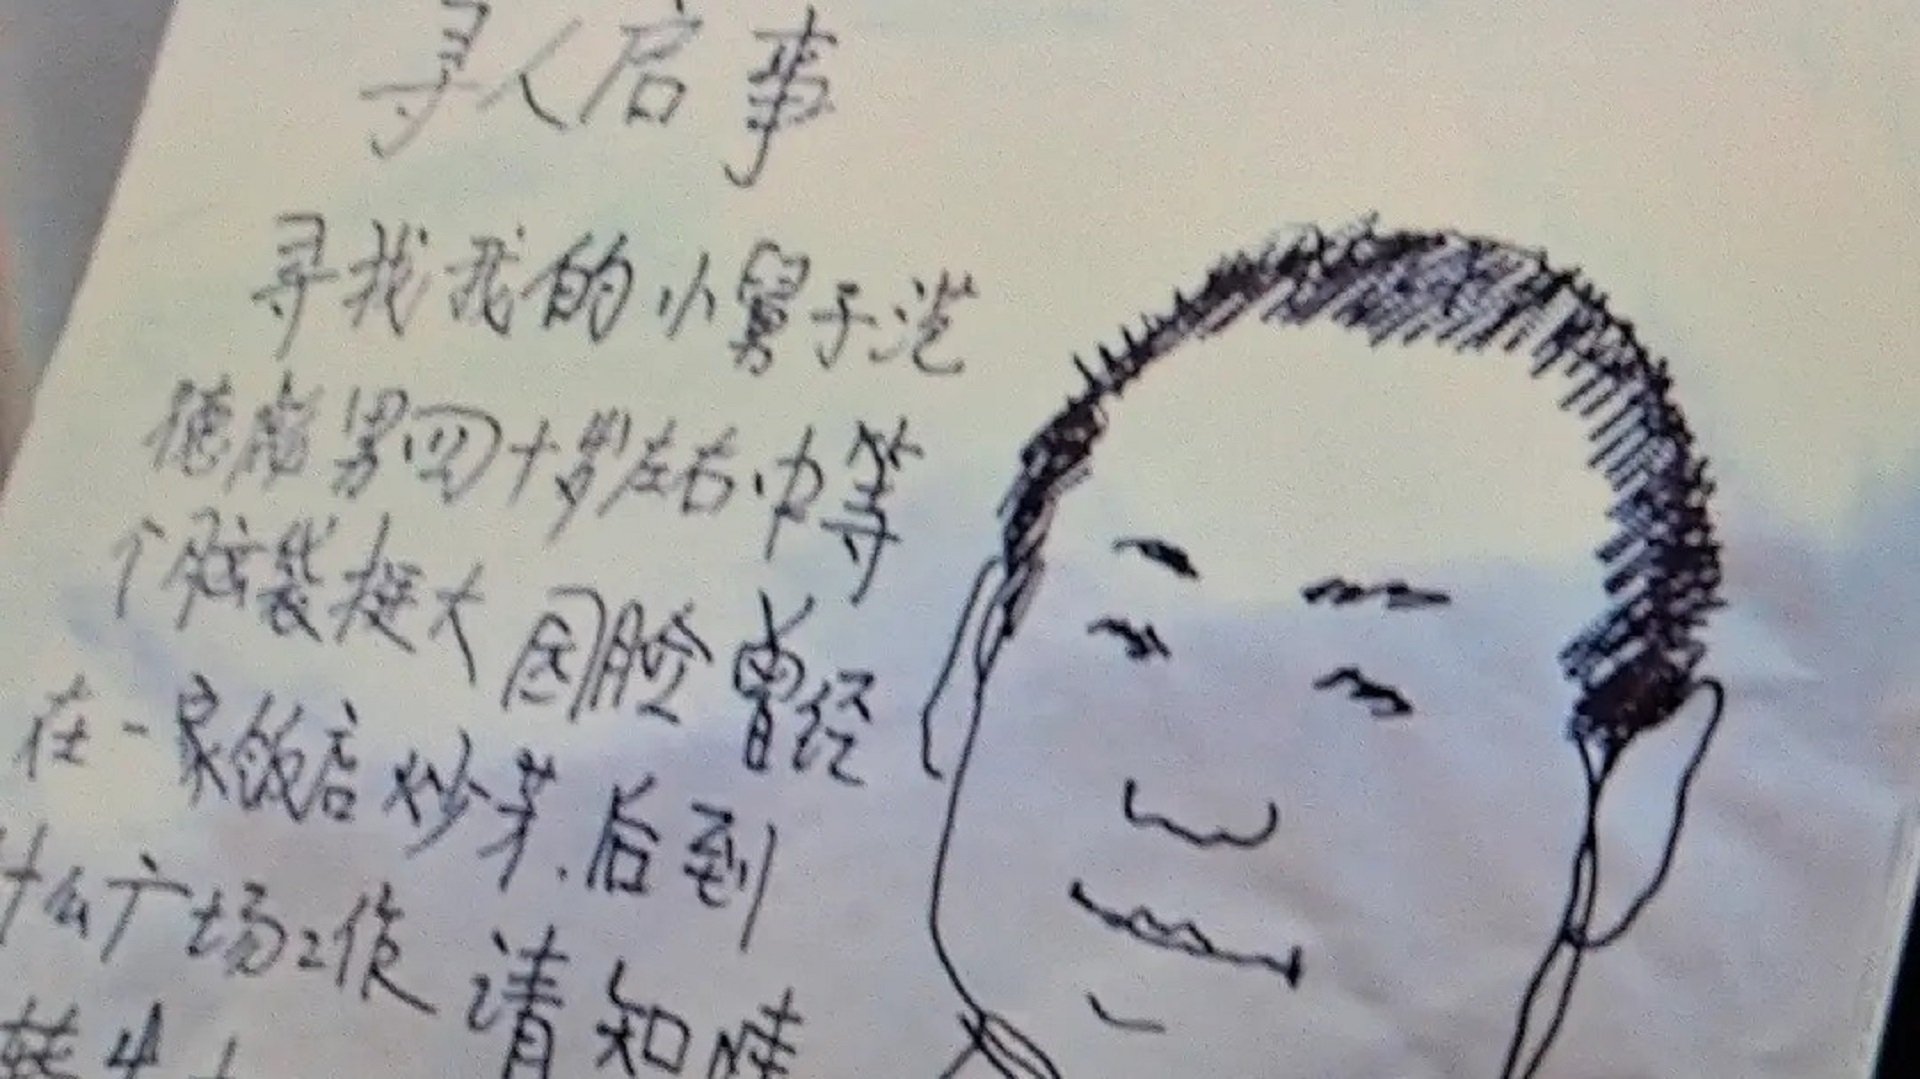 寻人启事
寻找我的小舅子范
德彪男四十岁左右中等
个脑袋挺大园脸曾经
在一家饭店炒菜.后到
什么广场工作请知情